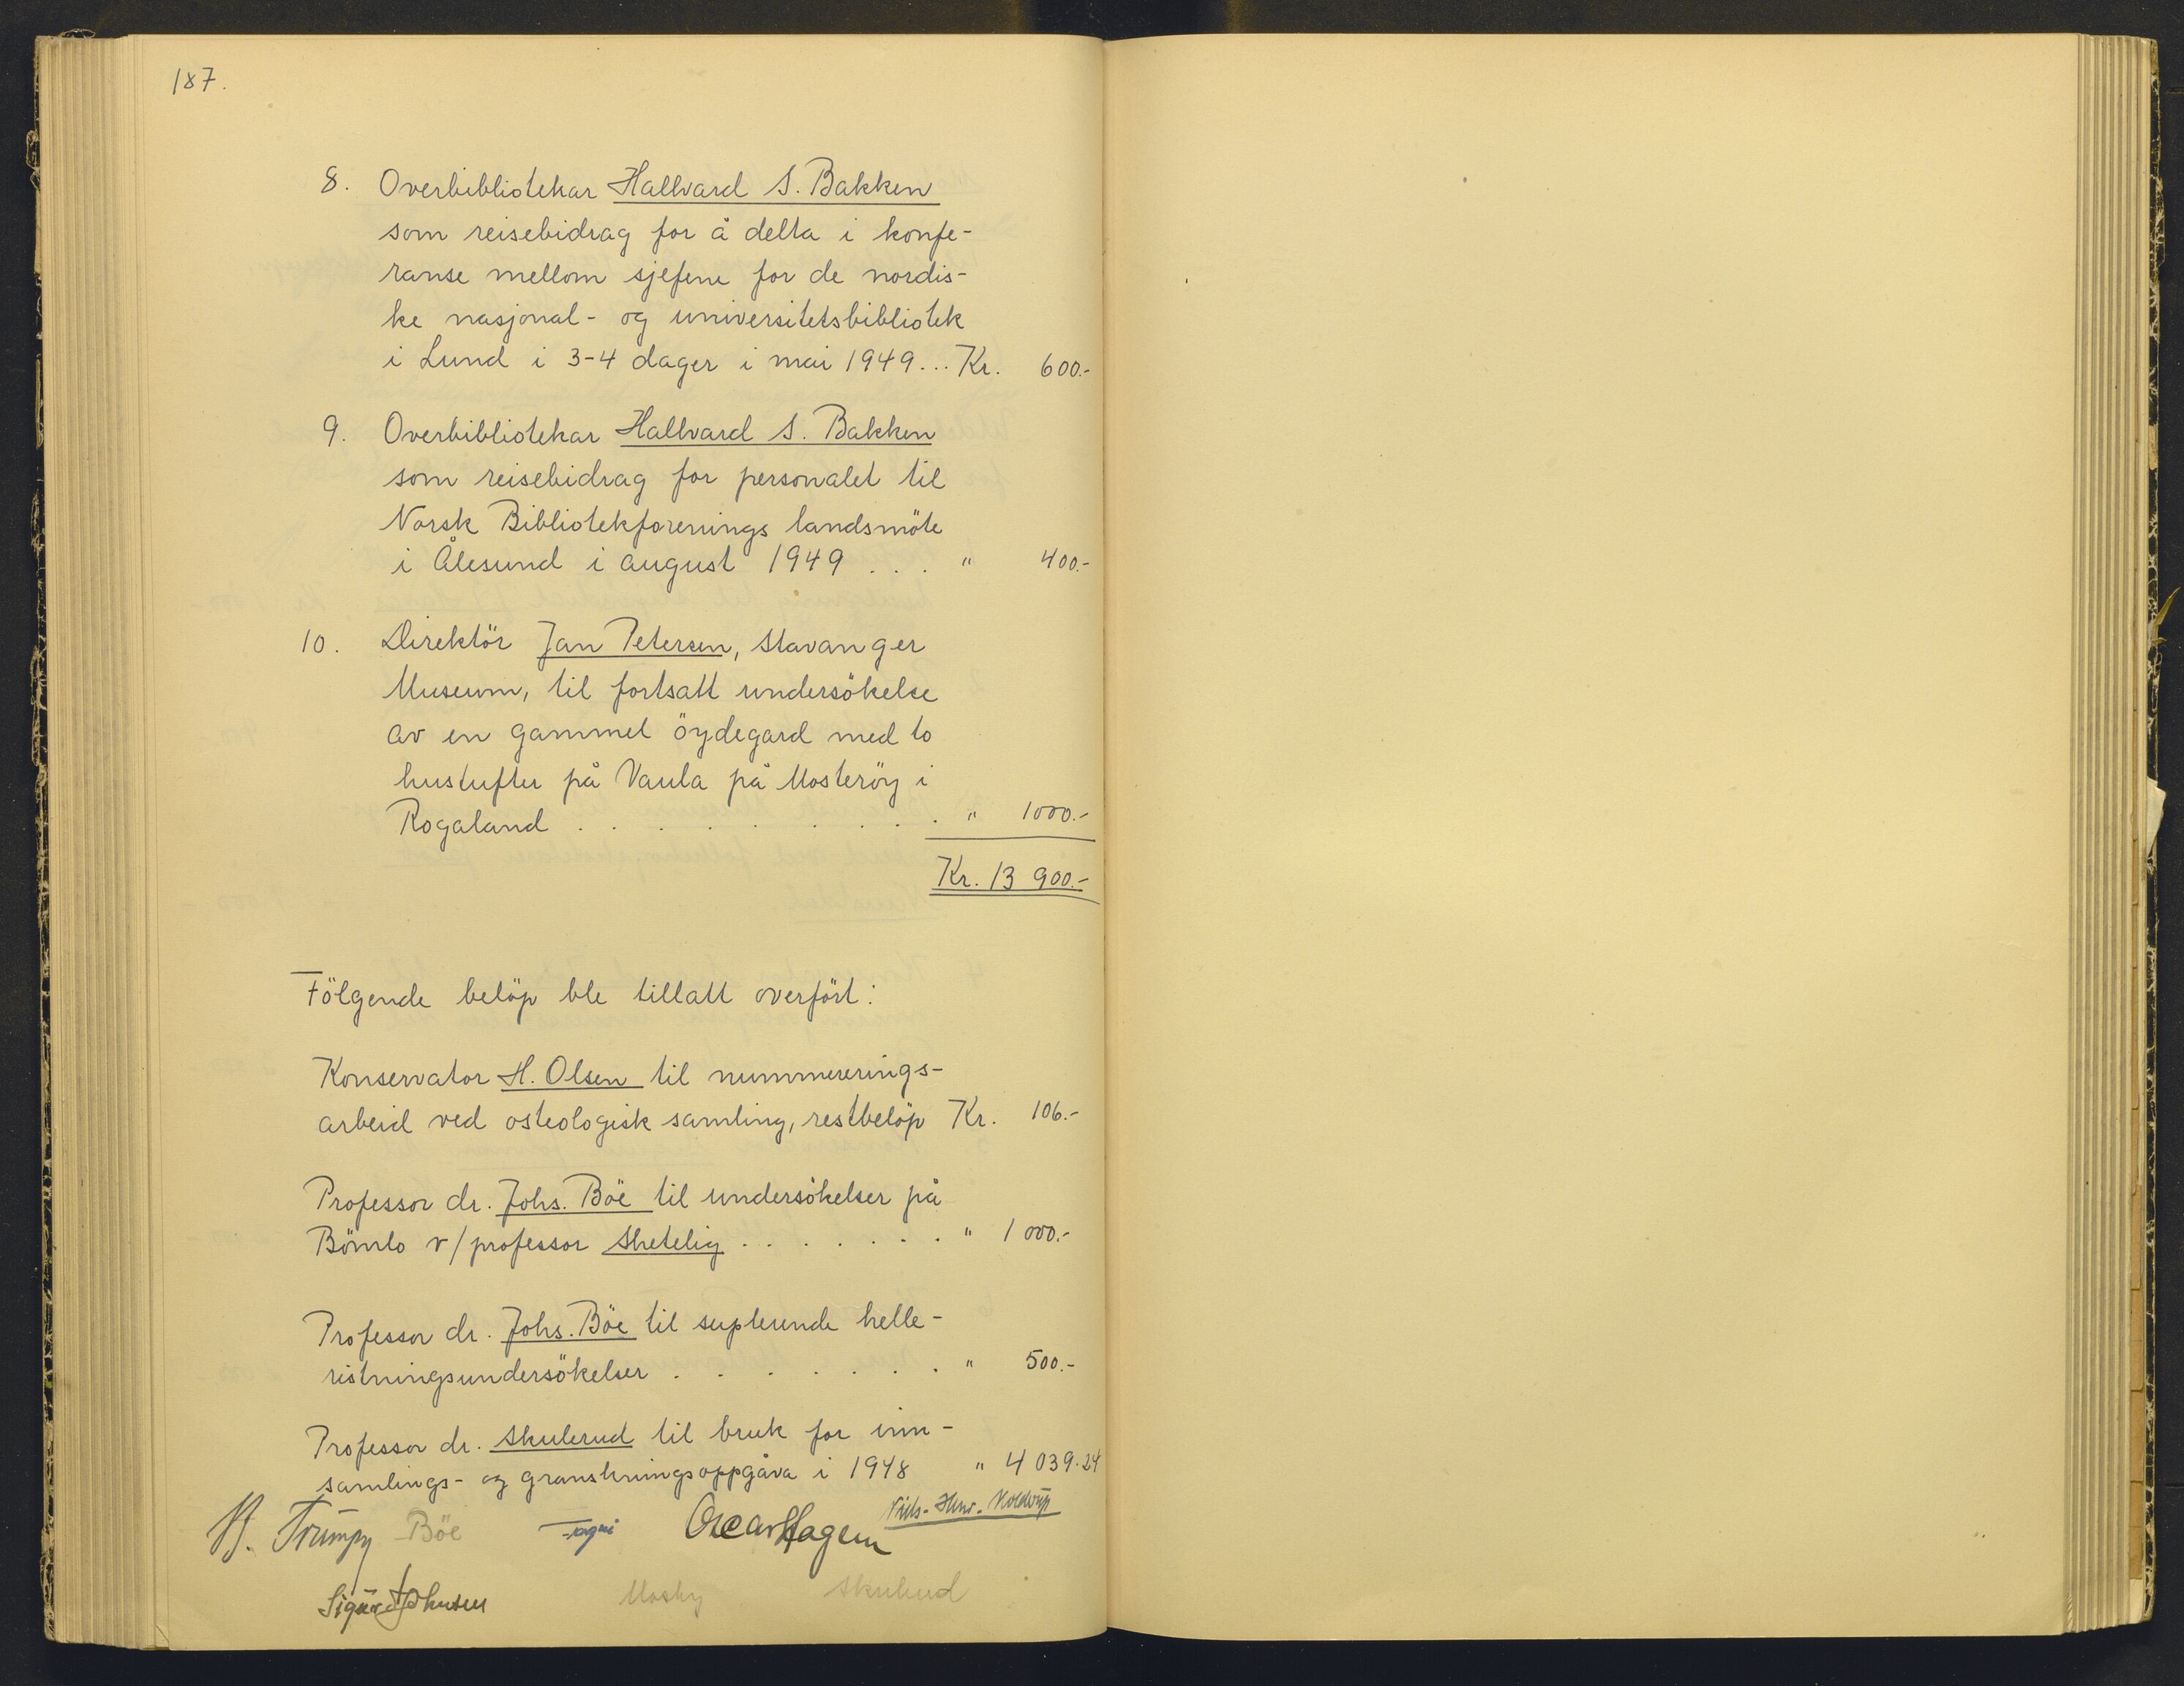 187.
8. Overbibliotekar Hallvard S. Bakken
som reisebidrag for å delta i konfe-
ranse mellom sjefene for de nordis-
ke nasjonal- og universitetsbibliotek
i Lund i 3-4 dager i mai 1949... Kr. 600.-
9. Overbibliotekar Hallvard S. Bakken
som reisebidrag for personalet til
Norsk Bibliotekforenings landsmöte
i Ålesund i august 1949 . . . " 400.-
10. Direktör Jan Petersen, Stavanger
Museum, til fortsatt undersökelse
av en gammel öydegard med to
hustufter på Vaula på Mosteröy i
Rogaland . . . . . . . . . " 1000.-
Kr. 13 900.-
Fölgende belöp ble tillatt overfört:
Konservator H. Olsen til nummererings-
arbeid ved osteologisk samling, restbelöp Kr. 106.-
Professor dr. Johs. Böe til undersökelser på
Bömlo v/professor Shetelig . . . . . . . " 1 000.-
Professor dr. Johs. Böe til suplerende helle-
ristningsundersökelser . . . . . . . " 500.-
Professor dr. Skulerud til bruk for inn-
samlings- og granskningsoppgåva i 1948 " 4 039.24
B. Trumpy Böe Oscar Hagem Niels-Henr. Kolderup
Sigurd Johnsen Mosby Skulerud